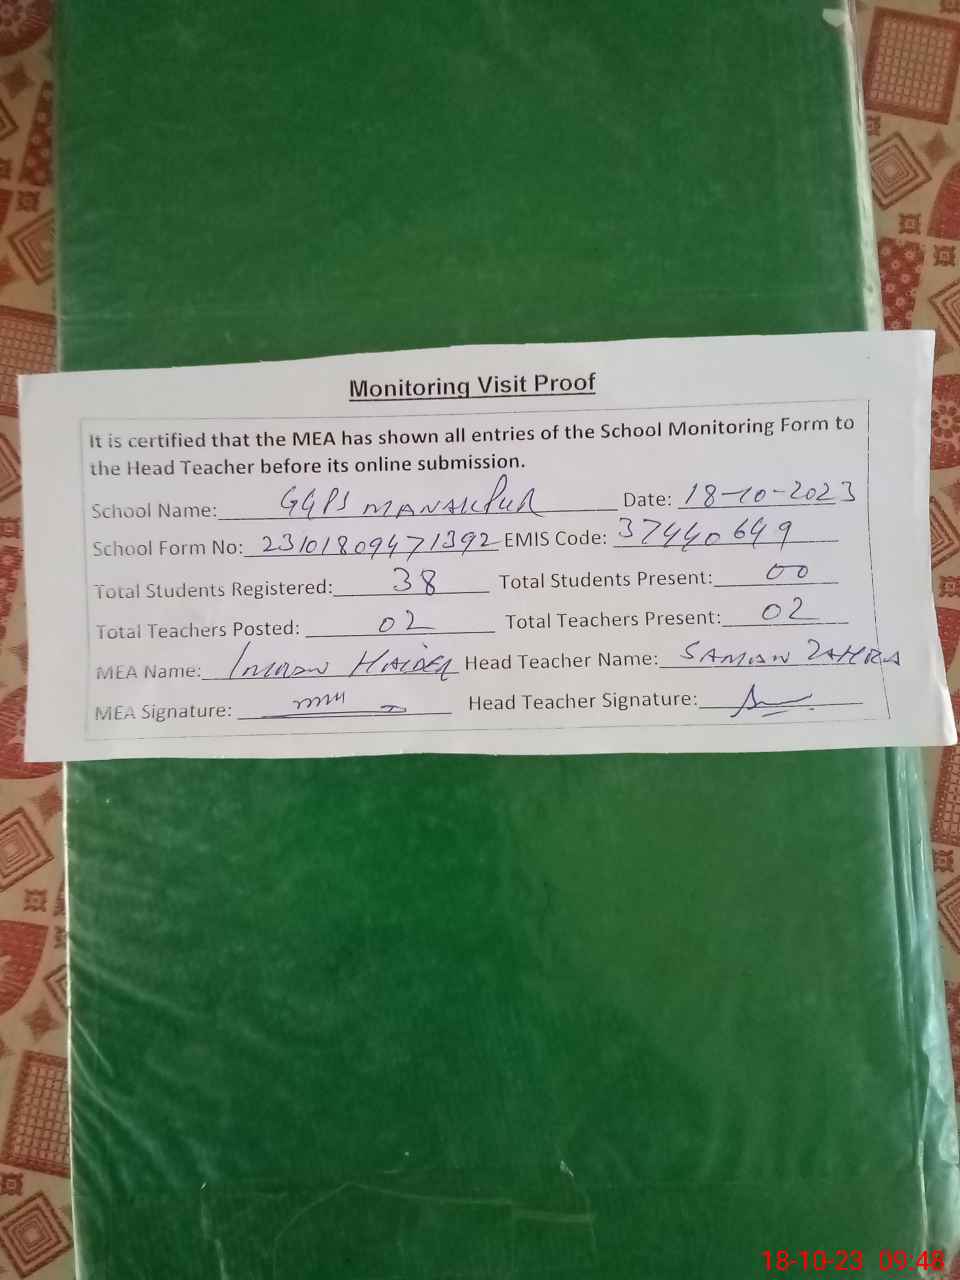 Monitoring Visit Proof
It is certified that the MEA has shown all entries of the School Monitoring Form to
the Head Teacher before its online submission.
School Name: GGPS MANAKPUR Date: 18-10-2023
School Form No: 23101809471392 EMIS Code: 37440649
Total Students Registered: 38 Total Students Present: 00
Total Teachers Posted: 02 Total Teachers Present: 02
MEA Name: IMRAN HAIDER Head Teacher Name: SAMAN ZAHRA
MEA Signature: Head Teacher Signature:
18-10-23 09:48